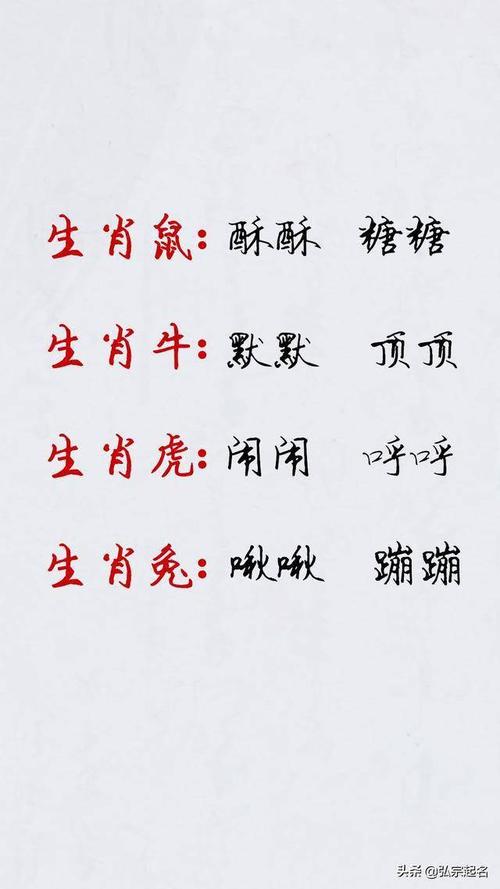 生肖鼠：酥酥 糖糖
生肖牛：默默 顶顶
生肖虎：闹闹 呼呼
生肖兔：啾啾 蹦蹦
头条 @弘宗起名